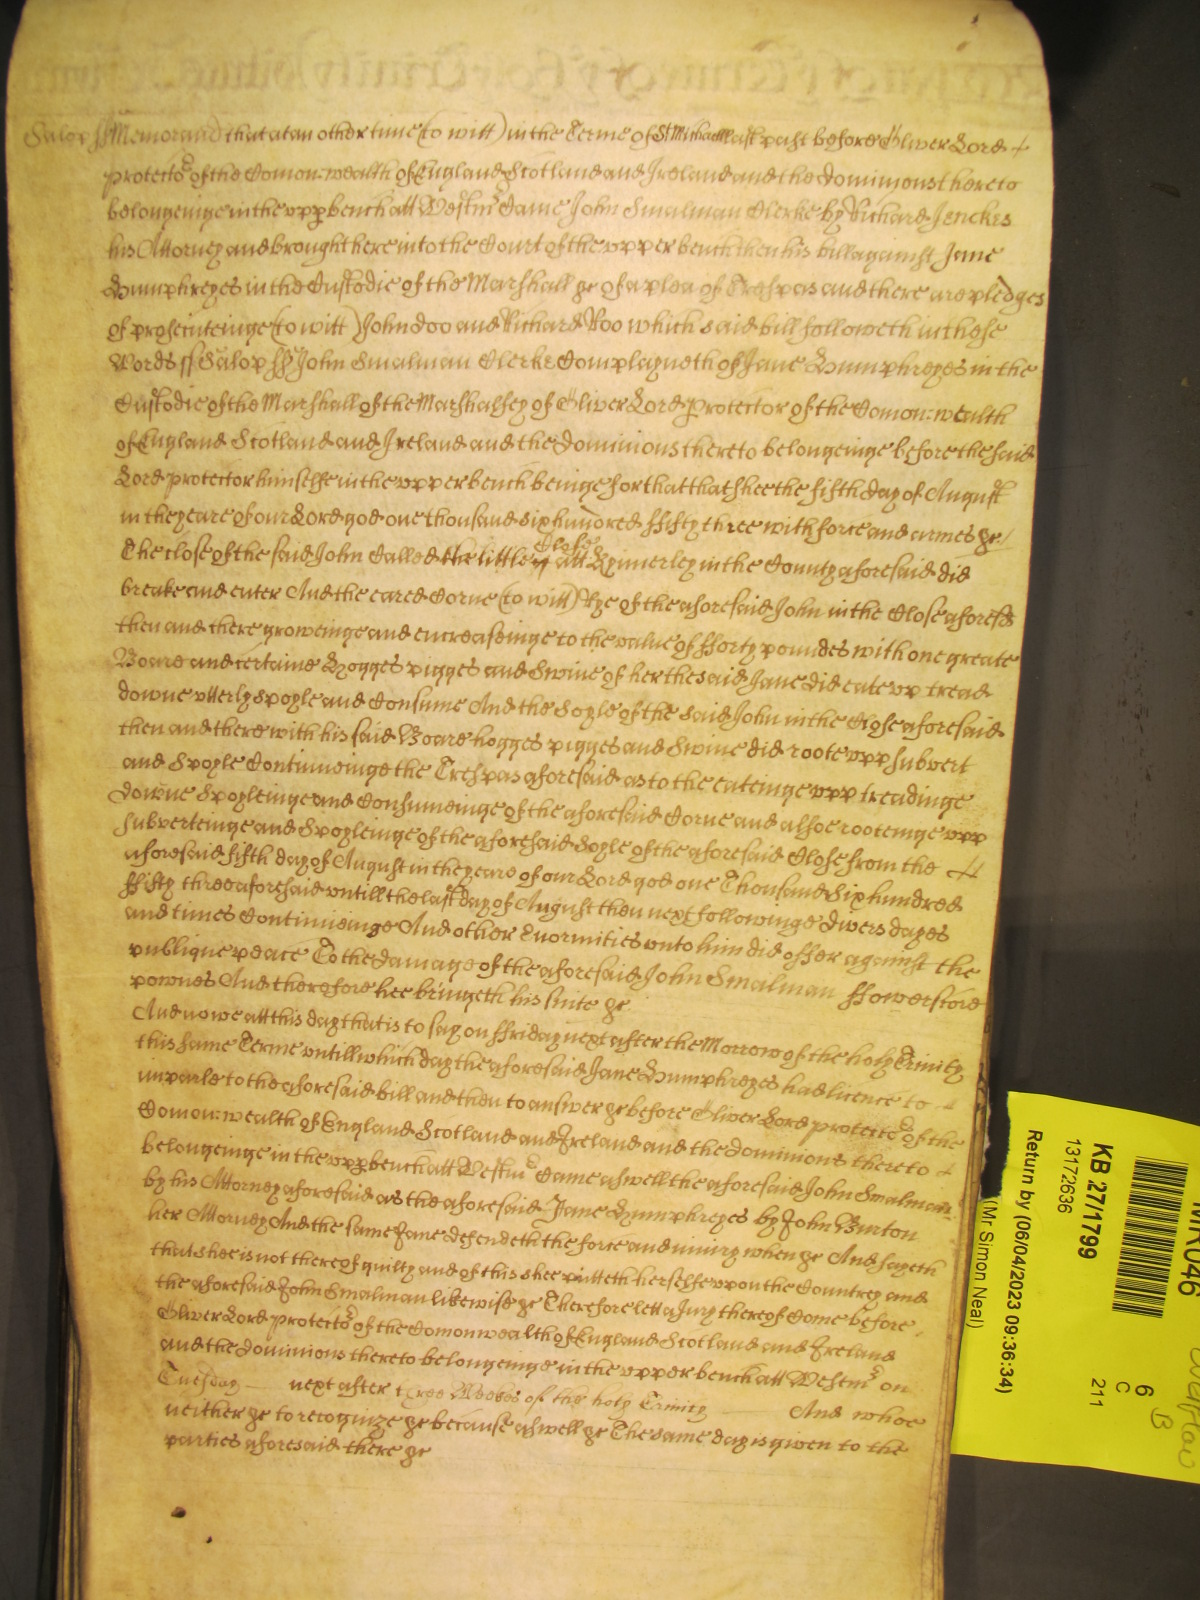 Salop ss Memorand that at an other tyme (to witt) in the Terme of St Michaell last past before Oliver Lord
protector of the Comon:wealth of England Scotland and Ireland and the dominions thereto
belongeinge in the upp bench att Westmr Came John Smalman Clerke by Richard Jenckes
his Attorney and brought here into the Court of the upper bench then his bill against Jane
Humphreyes in the Custodie of the Marshall &c of a plea of Trespas and there are pledges
of prosecuteinge (to witt) John Doo and Richard Roo which said bill followeth in these
Words ss Salop ss John Smalman Clerke Complayneth of Jane Humphreyes in the
Custodie of the Marshall of the Marshalsey of Oliver Lord Protector of the Comon:wealth
of England Scotland and Ireland and the dominions thereto belongeinge before the said
Lord protector himselfe in the upper bench beinge for that that shee the fifth day of August
in the yeare of our Lord god one thousand six hundred ffifty three with force and armes &c
The close of the said John Called the little Close att Kynnerley in the County aforesaid did
breake and enter And the eared Corne (to witt) Rye of the aforesaid John in the Close aforesd
then and there groweinge and encreaseinge to the value of fforty poundes with one greate
Boare and certaine Hogges pigges and Swine of her the said Jane did eate up tread
downe utterly spoyle and Consume And the Soyle of the said John in the Close aforesaid
then and there with his said Boare hogges pigges and Swine did roote upp subvert
and Spoyle Continueinge the Trespas aforesaid as to the eateinge upp treadinge
downe Spoyleinge and Consumeinge of the aforesaid Corne and alsoe rooteinge upp
subverteinge and Spoyleinge of the aforesaid Soyle of the aforesaid Close from the
aforesaid fifth day of August in the yeare of our Lord god one Thousand Six hundred
ffifty three aforesaid untill the last day of August then next followinge divers dayes
and times Continueinge And other Enormities unto him did offer against the
publique peace To the damage of the aforesaid John Smalman ffowerscore
pownes And therefore hee bringeth his suite &c
And nowe att this day that is to say on ffriday next after the Morrow of the holy Trinity
this same Terme untill which day the aforesaid Jane Humphreyes had licence to
imparle to the aforesaid bill and then to answer &c before Oliver Lord protector of the
Comon:wealth of England Scotland and Ireland and the dominions thereto
belongeinge in the upp bench att Westmr Came aswell the aforesaid John Smalman
by his Attorney aforesaid as the aforesaid Jane Humphreyes by John Burton
her Attorney And the same Jane defendeth the force and iniury when &c And sayeth
that shee is not thereof guilty and of this shee putteth herselfe upon the Countrey and
the aforesaid John Smalman likewise &c Therefore lett a Jury thereof Come before
Oliver Lord protector of the Comonwealth of England Scotland and Ireland
and the dominions thereto belongeinge in the upper bench att Westmr on
Tuesday next after three Weekes of the holy Trinity And whoe
neither &c to recognize &c because aswell &c The same day is given to the
parties aforesaid there &c
KB 27/1799
13172636
Return by (06/04/2023 09:36:34)
(Mr Simon Neal)
MR046
6
C
211
B